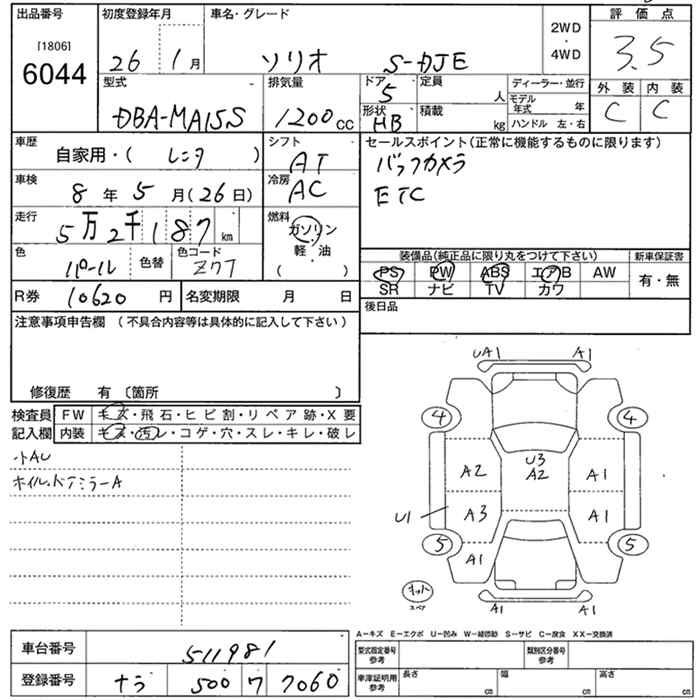 出品番号 初度登録年月 車名・グレード 2WD・4WD 評価点
[1806] 6044 26 1月 ソリオ S-DJE 3.5
型式 排気量 ドア 定員 ディーラー・並行 外装 内装
DBA-MA15S 1200cc 5 人 モデル年式 年 C C
形状 積載 ハンドル 左・右
HB kg
車歴 シフト セールスポイント(正常に機能するものに限ります)
自家用・( レンタ ) AT バックカメラ
車検 冷房 ETC
8年5月(26日) AC
走行 燃料
5万2千187km ガソリン・軽・油( )
色 色替 色コード 装備品(純正品に限り丸をつけて下さい) 新車保証書
パール Z7T PS PW ABS エアB AW 有・無
SR ナビ TV カワ
R券 10620円 名変期限 月 日 後日品
注意事項申告欄 (不具合内容等は具体的に記入して下さい)
修復歴 有 〔箇所 〕
検査員記入欄 FW キズ・飛石・ヒビ割・リペア跡・X要
内装 キズ・汚レ・コゲ・穴・スレ・キレ・破レ
小AU
ホイル、ドアミラーA
UA1 A1
4 4
A2 U3 A2 A1
U1 A3 A1
5 5
A1
キット スペア
A1 A1
A−キズ E−エクボ U−凹み W−補修跡 S−サビ C−腐食 XX−交換済
車台番号 511981 型式指定番号 参考 類別区分番号 参考
登録番号 ナラ 500 ワ 7060 車庫証明用 参考 長さ cm 幅 cm 高さ cm